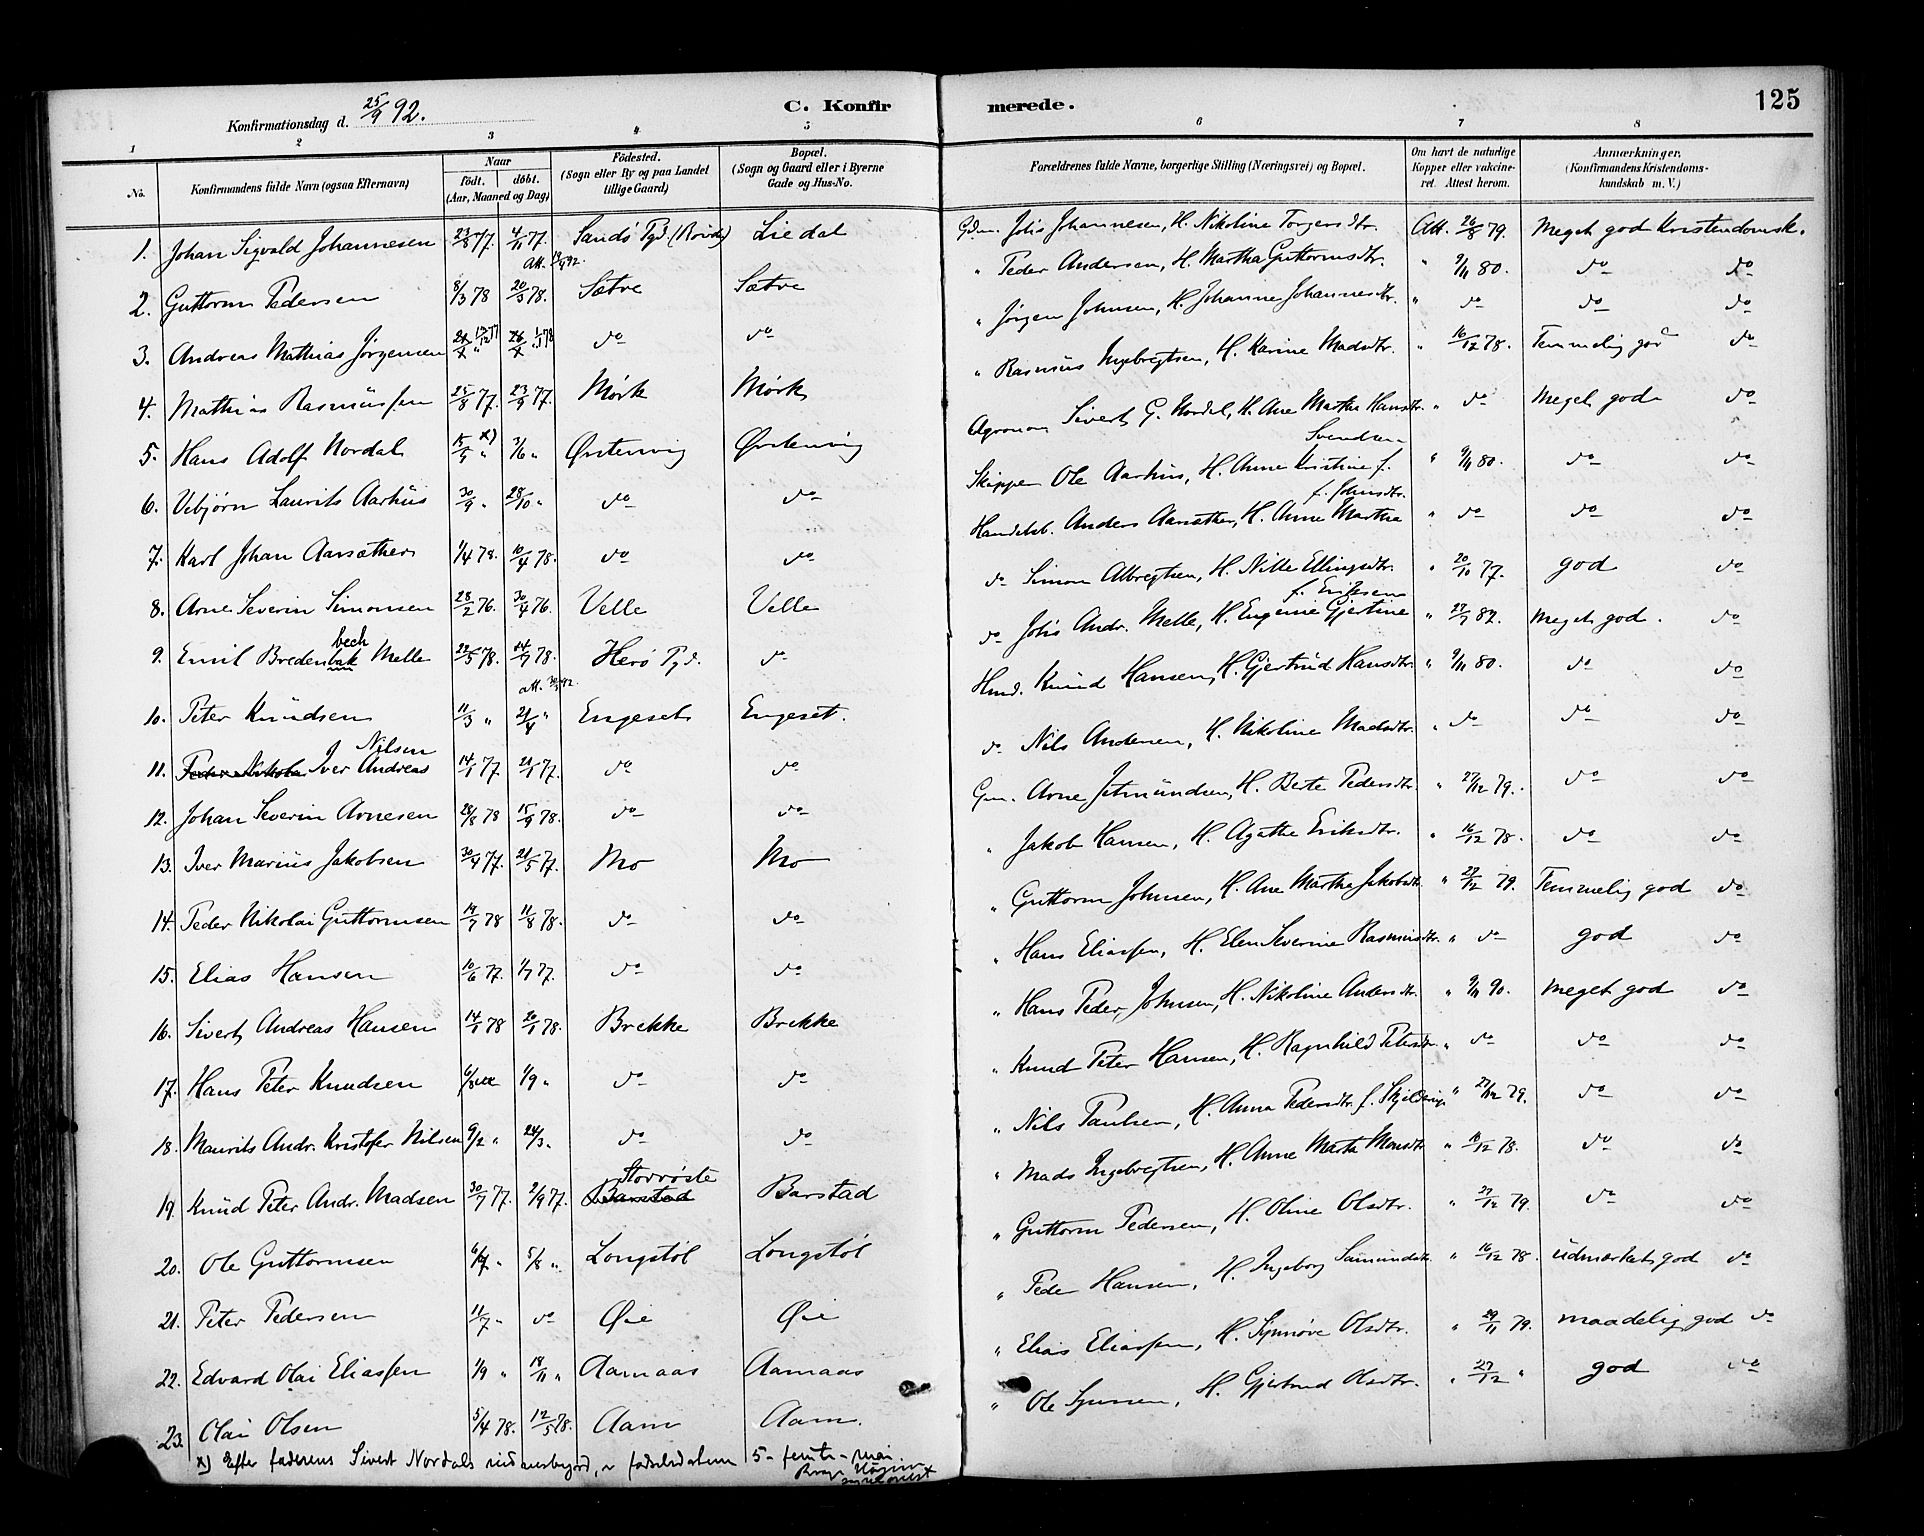 Konfirmationsdag d. 25/9 92. C. Konfirmerede. 125
1 2 3 4 5 6 7 8
No. Konfirmandens fulde Navn (ogsaa Efternavn) Naar födt. döbt. (Aar, Maaned og Dag) Födested. (Sogn eller By og paa Landet tillige Gaard) Bopæl. (Sogn og Gaard eller i Byerne Gade og Hus-No. Forældrenes fulde Navne, borgerlige Stilling (Næringsvei) og Bopæl. Om havt de naturlige Kopper eller vakcineret. Attest herom. Anmærkninger. (Konfirmandens Kristendomskundskab m. V.)
1. Johan Sigvald Johannesen 23/8 77. 4/11 77. Sandö Pgd. Liedal Johs Johannesen, H. Nikoline Torgersdtr. Att. 26/8 79. Meget god Kristendomsk.
2. Guttorm Pedersen 8/3 78 20/3 78. Sætre Sætre " Peder Andersen, H. Martha Guttormsdtr. " 9/11 80. do do
3. Andreas Mathias Jörgensen do do " Jörgen Johnsen, H. Johanne Johannesdtr. " do do do
4. Mathias Rasmussen 25/8 77. 23/9 77. Mörk Mörk " Rasmus Ingebregtsen, H. Karine Madsdtr. " 16/12 78. Temmelig god do
5. Hans Adolf Nordal 15/5 " x) 3/6 " Örstenvig Örstenvig Agronom Sivert G. Nordal, H. Ane Martha Hansdtr. " do Meget god do
6. Vebjörn Laurits Aarhus 30/9 " 28/10 " do do Skipper Ole Aarhus, H. Anne Kristine f. Svendsen " 9/11 80. do do
7. Karl Johan Aarsæther 1/4 78. 10/4 78. do do Handelsb. Anders Aarsæther, H. Anne Martha f. Johnsdtr. " do do do
8. Arne Severin Simonsen 28/2 76. 30/4 76. Velle Velle do Simon Albregtsen, H. Nille Ellingsdtr. " 20/10 77. god do
9. Emil Bredenbak bech Melle 22/5 78. 14/7 78. Herö Pgd. do do Johs Andr. Melle, H. Eugenie Gjertine f. Eriksen " 27/7 82. Meget god. do
10. Peter Knudsen 11/3 " 21/4 " Engeset Engeset. Hmd. Knud Hansen, H. Gjertrud Hansdtr. " 9/11 80. do do
11. Peder Nikolai Iver Andreas Nilsen 14/1 77. 21/1 77. do do do Nils Andersen, H. Nikoline Madsdtr. " do do do
12. Johan Severin Arnesen 28/8 78 15/9 78. do do Gm. Arne Jetmundsen, H. Berte Pedersdtr. " 27/12 79. do do
13. Iver Marius Jakobsen 30/4 77. 21/5 77. Mo Mo " Jakob Hansen, H. Agathe Eriksdtr. " 16/12 78. do do
14. Peder Nikolai Guttormsen 19/7 78 11/8 78. do do " Guttorm Johnsen, H. Ane Martha Jakobsdtr. " 27/12 79. Temmelig god do
15. Elias Hansen 10/6 77. 1/7 77. do do " Hans Eliassen, H. Elen Severine Rasmusdtr. " do god do
16. Sivert Andreas Hansen 14/1 78 20/1 78. Brekke Brekke " Hans Peder Johnsen, H. Nikoline Andersdtr. " 9/11 90. Meget god do
17. Hans Peter Knudsen 1/9 " do do " Knud Peter Hansen, H. Ragnhild Petersdtr. " do do do
18. Maurits Andr. Kristofer Nilsen 9/2 " 24/3 " do do " Nils Paulsen, H. Anna Pedersdtr. f. " 27/12 79. do do
19. Knud Peter Andr. Madsen 30/7 77. 2/9 77. Barstad Storröste Barstad " Mads Ingebregtsen, H. Anne Marta Monsdtr. " 16/12 78. do do
20. Ole Guttormsen 5/8 " Longstöl Longstöl " Guttorm Pedersen, H. Oline Olsdtr. " 27/12 79. do do
21. Peter Pedersen 11/7 " do Öie Öie " Peder Hansen, H. Ingeborg Samundsdtr. " 16/12 78. udmærket god do
22. Edvard Olai Eliassen 1/9 " 18/11 " Aamaas Aamaas " Elias Eliassen, H. Synnöve Olsdtr. " 29/11 79. maadelig god do
23. Olai Olsen 5/4 78. 12/5 78. Aam Aam. " Ole H. Gjertrud Olsdtr. " 27/12 " god do
x) Efter faderens Sivert Nordals er födselsdatum 5 - femte - mai